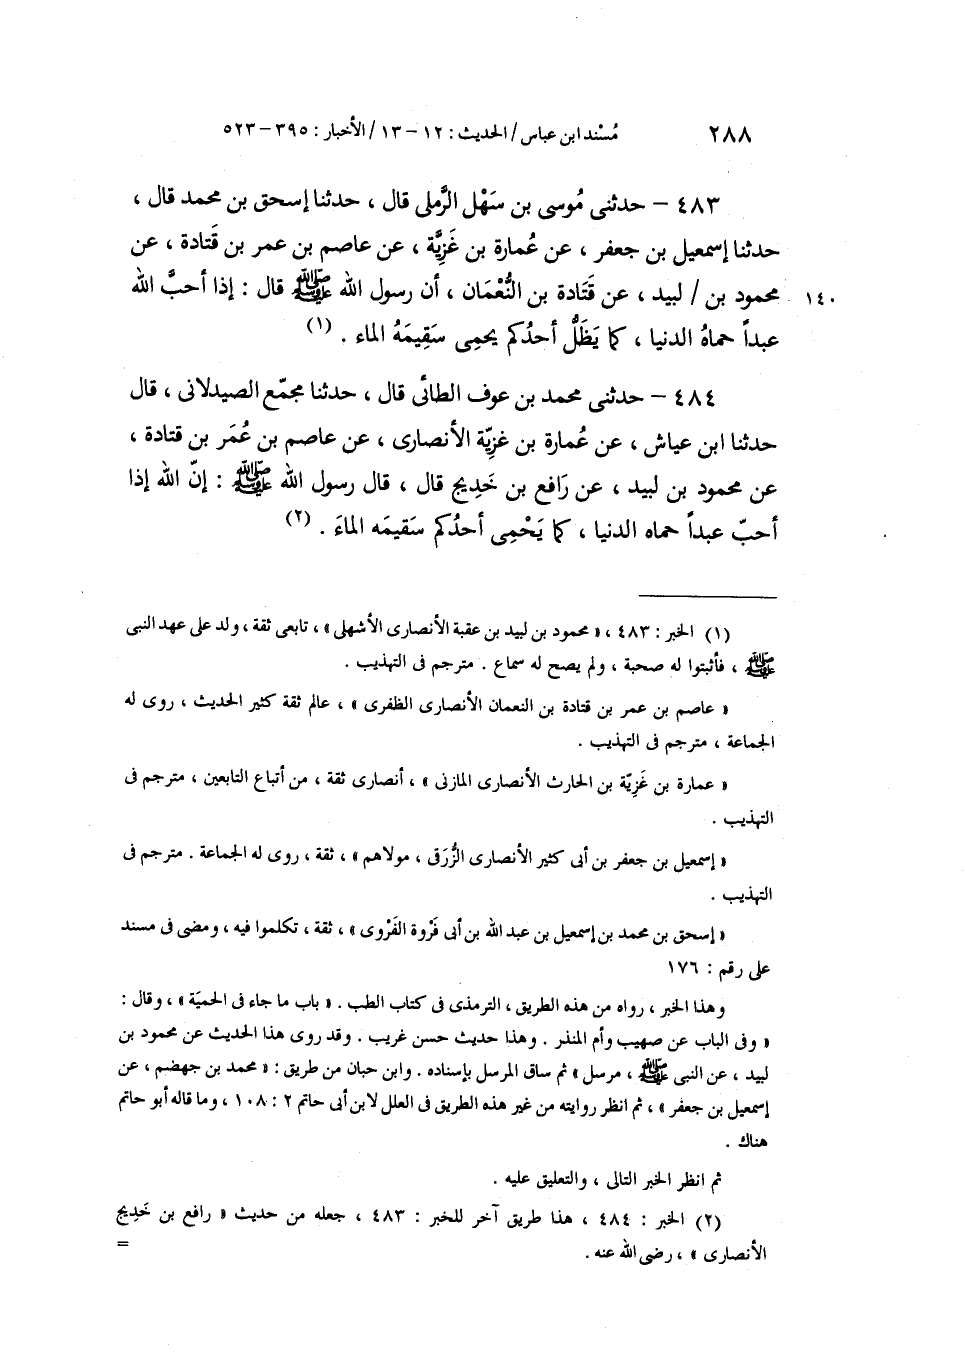 ٢٨٨ مُسْند ابن عباس / الحديث : ١٢ – ١٣ / الأخبار : ٣٩٥ – ٥٢٣
٤٨٣ – حدثنى مُوسى بن سَهْل الرَّملى قال ، حدثنا إسحق بن محمد قال ،
حدثنا إسمعيل بن جعفر ، عن عُمارة بن غَزِيَّة ، عن عاصم بن عمر بن قَتادة ، عن
محمود بن / لبيد ، عن قَتَادة بن النُّعْمَان ، أن رسول الله ﷺ قال : إذا أحبَّ الله ١٤٠
عبداً حماهُ الدنيا ، كما يَظَلُّ أحدُكم يحمِى سَقِيمَهُ الماء . (١)
٤٨٤ – حدثنى محمد بن عوف الطائى قال ، حدثنا مجمّع الصيدلانى ، قال
حدثنا ابن عياش ، عن عُمارة بن غزِيّة الأنصارى ، عن عاصم بن عُمَر بن قتادة ،
عن محمود بن لبيد ، عن رَافع بن خَدِيج قال ، قال رسول الله ﷺ : إنّ الله إذا
أحبّ عبداً حماه الدنيا ، كما يَحْمِى أحدُكم سَقيمَه الماءَ . (٢)
(١) الخبر : ٤٨٣ ، « محمود بن لبيد بن عقبة الأنصارى الأشهلى » ، تابعى ثقة ، ولد على عهد النبى
ﷺ ، فأثبتوا له صحبة ، ولم يصح له سماع . مترجم فى التهذيب .
« عاصم بن عمر بن قتادة بن النعمان الأنصارى الظفرى » ، عالم ثقة كثير الحديث ، روى له
الجماعة ، مترجم فى التهذيب .
« عمارة بن غَزِيّة بن الحارث الأنصارى المازنى » ، أنصارى ثقة ، من أتباع التابعين ، مترجم فى
التهذيب .
« إسمعيل بن جعفر بن أبى كثير الأنصارى الزُّرَقى ، مولاهم » ، ثقة ، روى له الجماعة . مترجم فى
التهذيب .
« إسحق بن محمد بن إسمعيل بن عبد الله بن أبى فَرْوة الفَرْوى » ، ثقة ، تكلموا فيه ، ومضى فى مسند
على رقم : ١٧٦
وهذا الخبر ، رواه من هذه الطريق ، الترمذى فى كتاب الطب . « باب ما جاء فى الحميَة » ، وقال :
« وفى الباب عن صهيب وأم المنذر . وهذا حديث حسن غريب . وقد روى هذا الحديث عن محمود بن
لبيد ، عن النبى ﷺ ، مرسل » ثم ساق المرسل بإسناده . وابن حبان من طريق : « محمد بن جهضم ، عن
إسمعيل بن جعفر » ، ثم انظر روايته من غير هذه الطريق فى العلل لابن أبى حاتم ٢ : ١٠٨ ، وما قاله أبو حاتم
هناك .
ثم انظر الخبر التالى ، والتعليق عليه .
(٢) الخبر : ٤٨٤ ، هذا طريق آخر للخبر : ٤٨٣ ، جعله من حديث « رافع بن خَدِيج
الأنصارى » ، رضى الله عنه . =